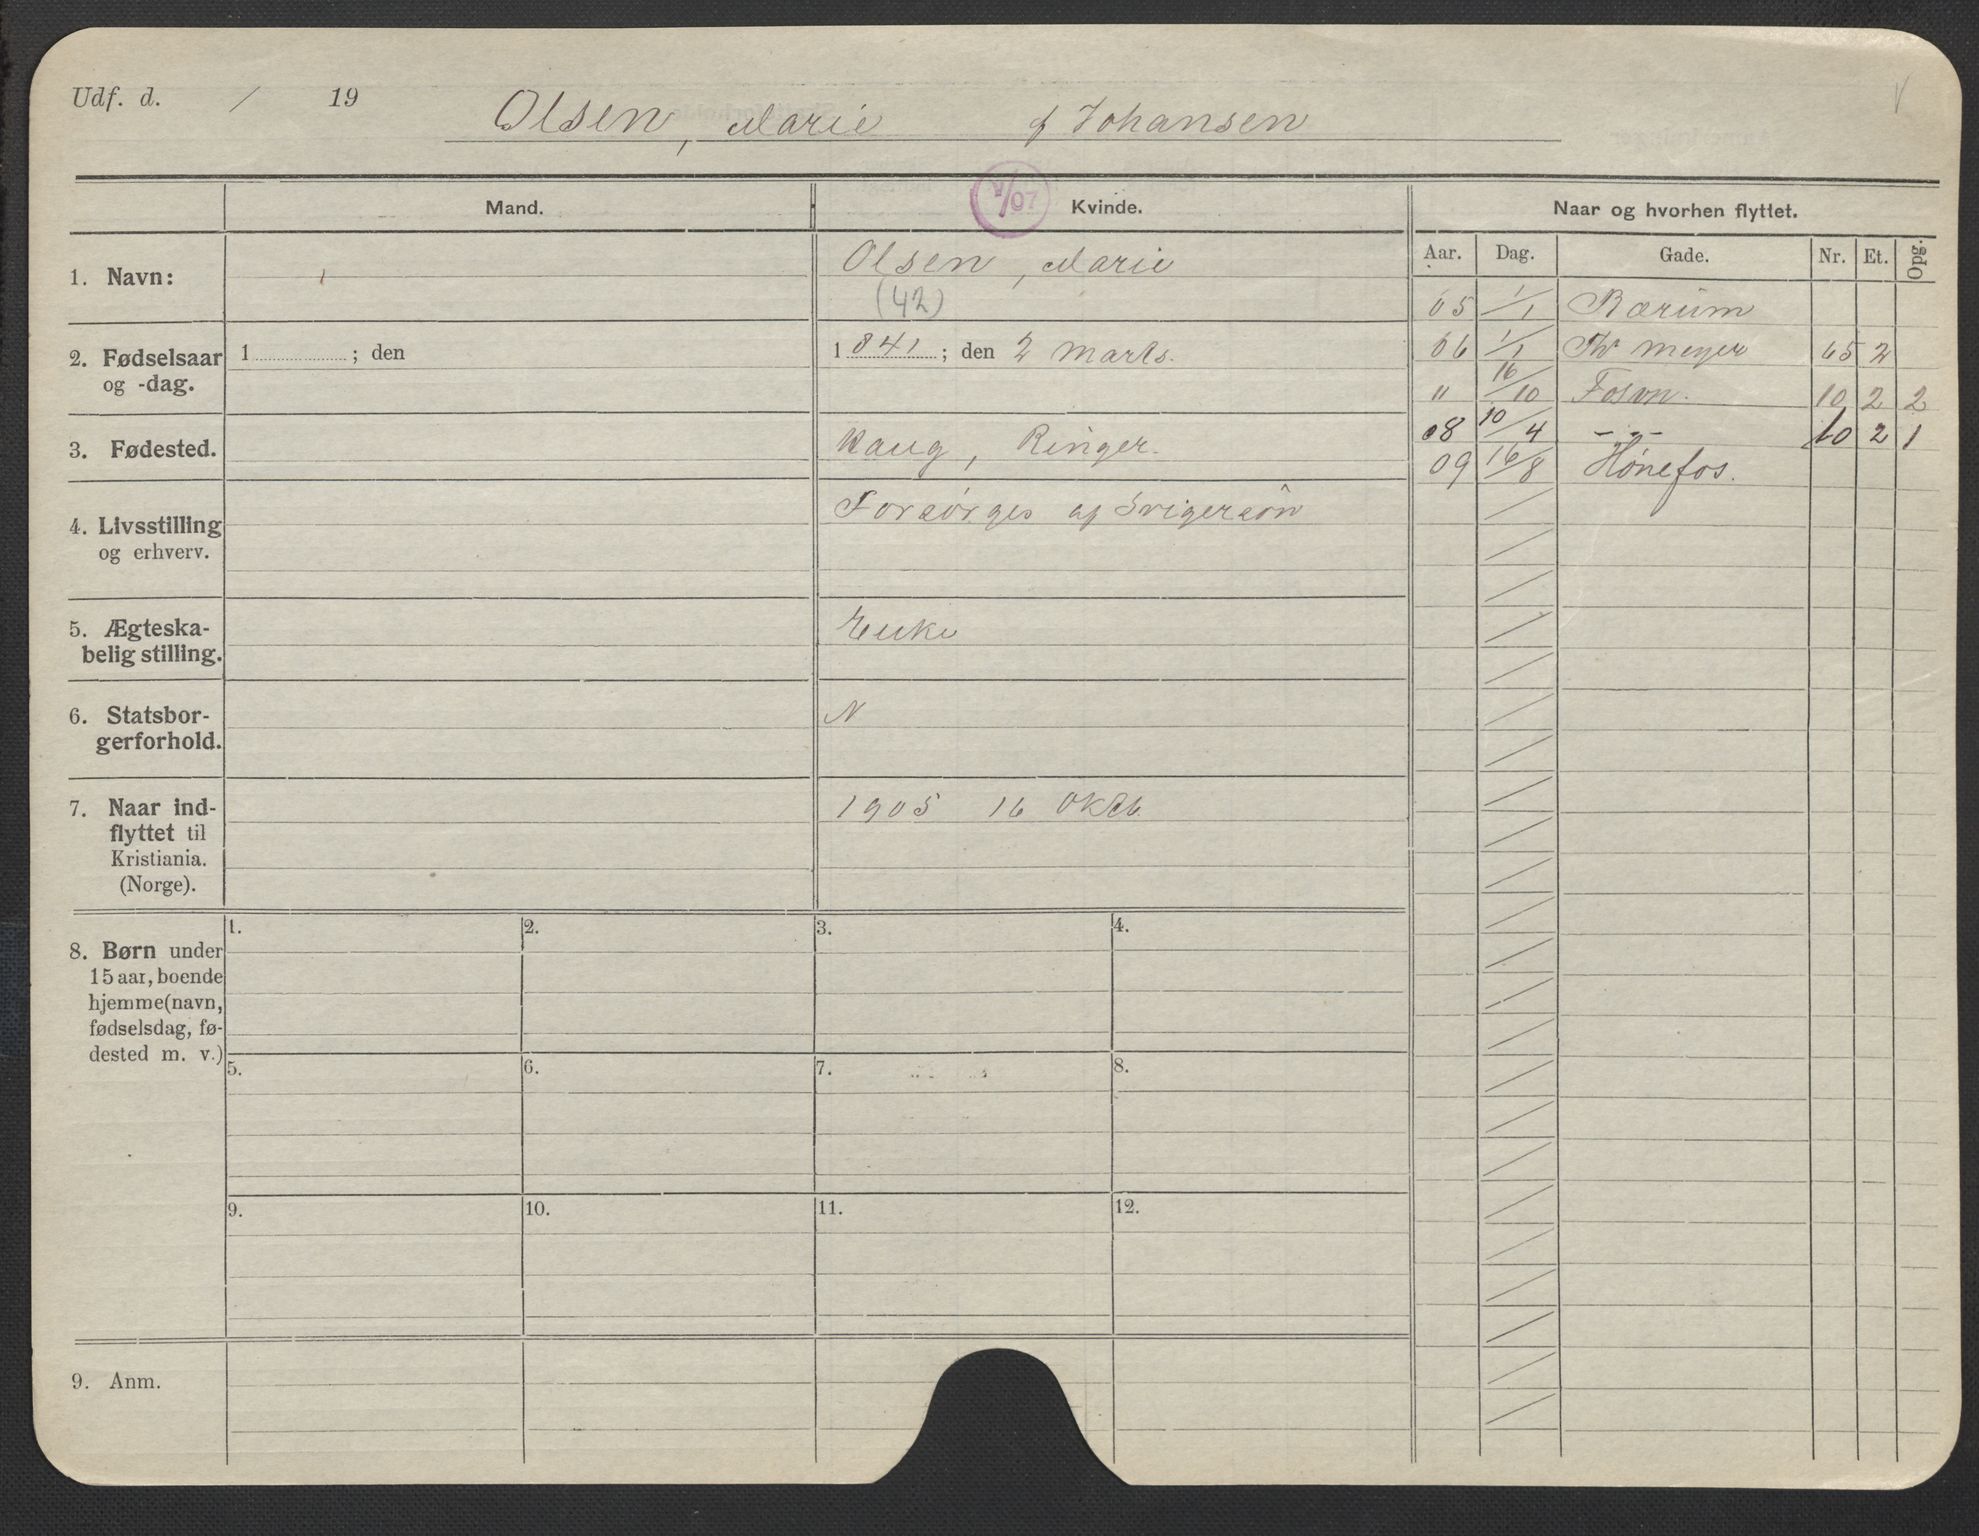 Udf. d. / 19
Olsen, Marie f Johansen
Mand.
Kvinde.
V/07
Naar og hvorhen flyttet.
Aar. Dag. Gade. Nr. Et. Opg.
1. Navn:
Olsen, Marie
(42)
2. Fødselsaar og -dag.
1 ; den
1841 ; den 2 Marts.
3. Fødested.
Haug, Ringer.
4. Livsstilling og erhverv.
Forsørges af Svigersøn
5. Ægteska-
belig stilling.
Enke
6. Statsbor-
gerforhold.
N
7. Naar ind-
flyttet til
Kristiania.
(Norge).
1905 16 Oktb.
05 1/1 Bærum
06 1/1 Th Meyer 65 2
" 16/10 Fosvn. 10 2 2
08 10/4 - - - 10 2 1
09 16/8 Hønefos.
8. Børn under
15 aar, boende
hjemme (navn,
fødselsdag, fø-
dested m. v.)
1. 2. 3. 4.
5. 6. 7. 8.
9. 10. 11. 12.
9. Anm.